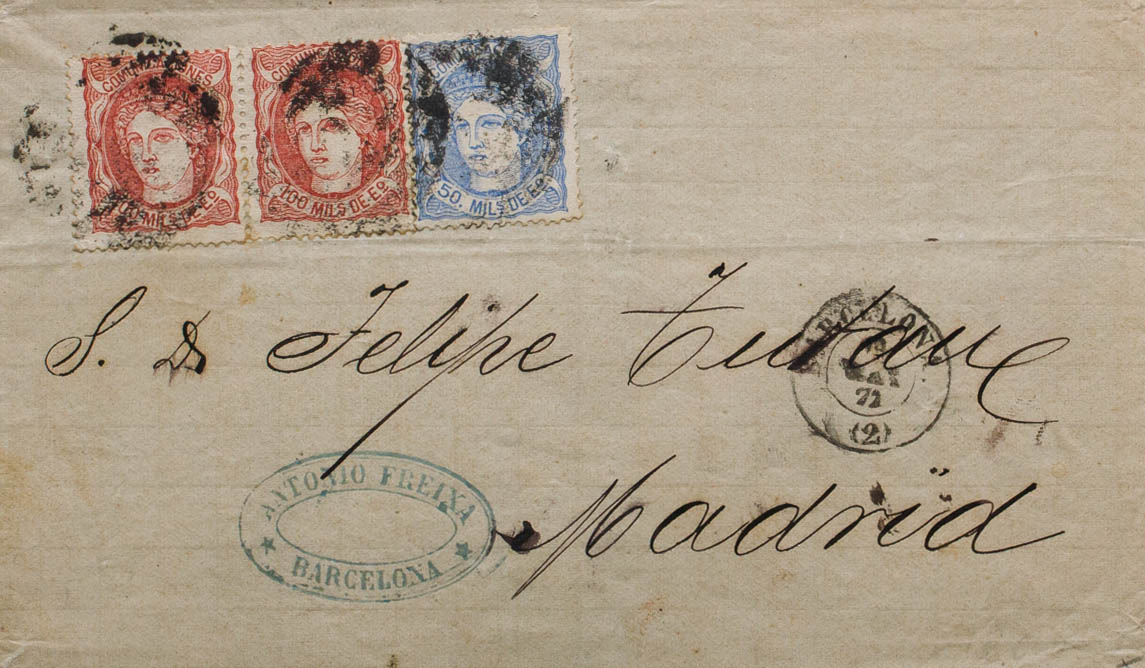 COMUNICACIONES
100 MILS DE Eo.
COMUNICACIONES
100 MILS DE Eo.
COMUNICACIONES
50. MILS DE Eo.
S. D. Felipe Tutau
BARCELONA
MAY
71
(2)
ANTONIO FREIXA
★ BARCELONA ★
Madrid